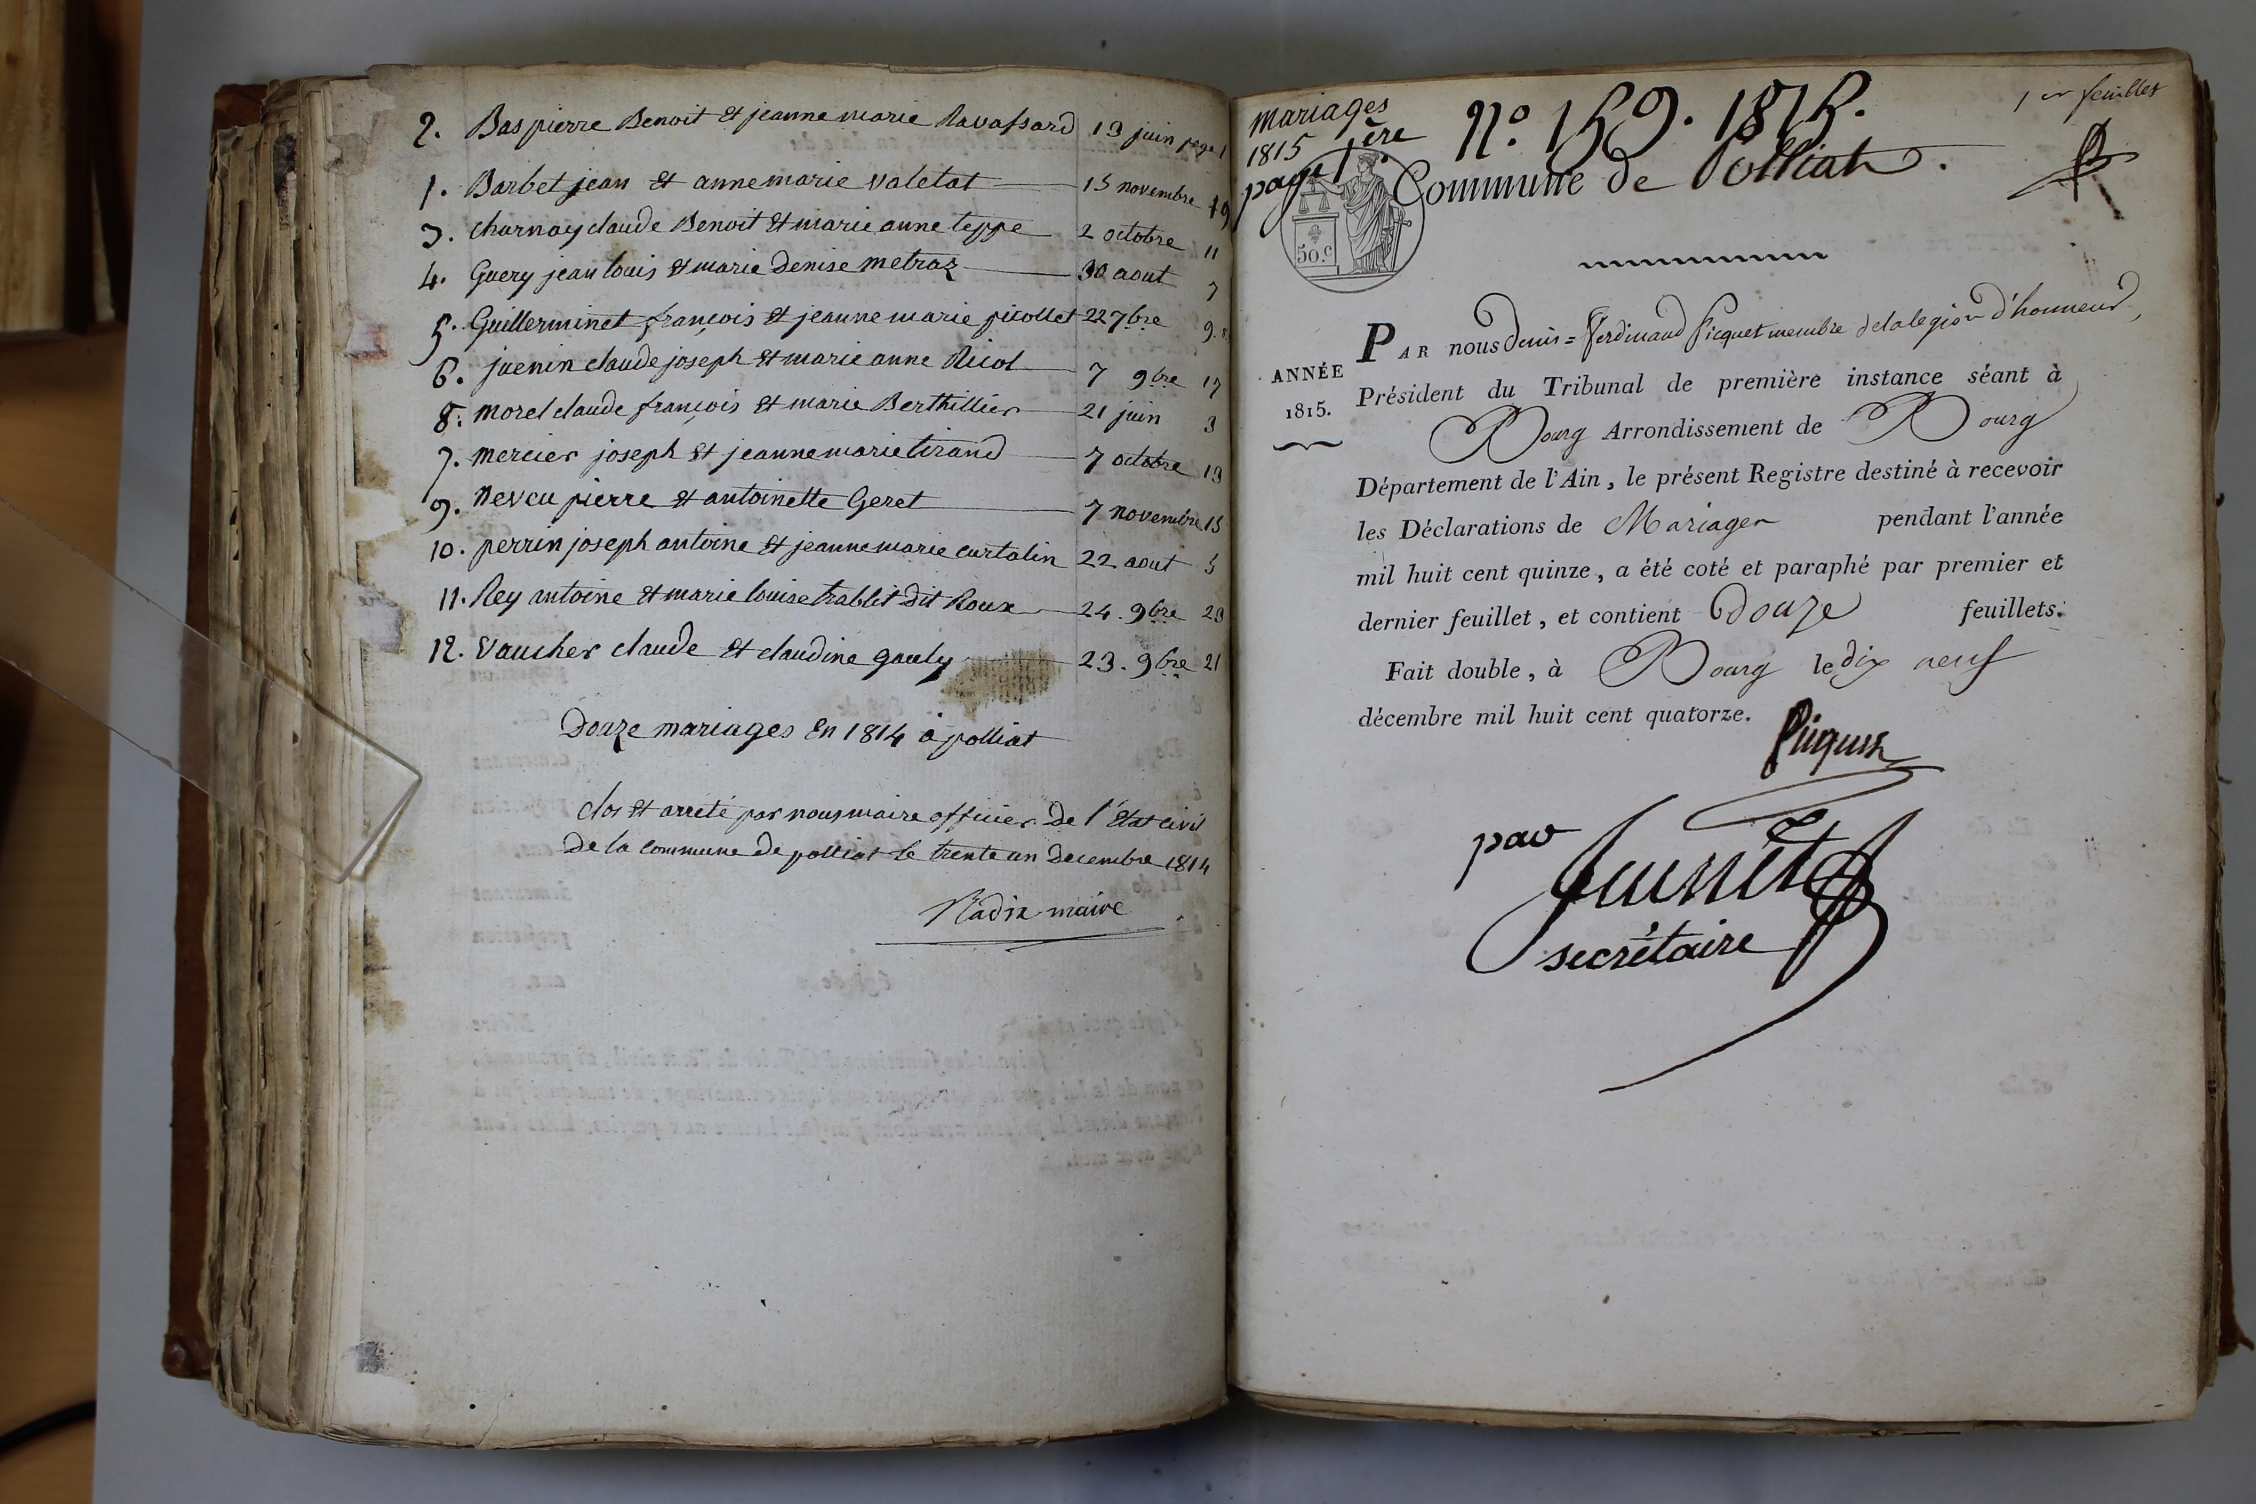 2. Bas pierre Benoit et jeanne marie Ravassard 13 juin page 1
1. Barbet jean et anne marie valetat 15 novembre 19
3. charnay claude Benoit et marie anne teppe 2 octobre 11
4. Guery jean louis et marie Denise metraz 30 aout 7
5. Guillerminet françois et jeanne marie picollet 22 7bre 9
6. juenin claude joseph et marie anne Ricol 7 9bre 17
8. morel claude françois et marie Berthillier 21 juin 3
7. mercier joseph et jeanne marie tirand 7 octobre 13
9. neveu pierre et antoinette Geret 7 novembre 15
10. perrin joseph antoine et jeanne marie curtalin 22 aout 5
11. Rey antoine et marie louise trablit dit Roux 24. 9bre 23
12. Vaucher claude et claudine gauly 23. 9bre 21
Douze mariages en 1814 à polliat
clos et arreté par nous maire officier de l'état civil
de la commune de polliat le trente un decembre 1814
Nadix maire
mariages
1815
page 1ère
N.º 159. 1815.
1er feuillet
Commune de Polliat.
50.c
ANNÉE
1815.
PAR nous Denis=Ferdinand Picquet membre de la legion d'honneur,
Président du Tribunal de première instance séant à
Bourg Arrondissement de Bourg
Département de l'Ain, le présent Registre destiné à recevoir
les Déclarations de Mariages pendant l'année
mil huit cent quinze, a été coté et paraphé par premier et
dernier feuillet, et contient douze feuillets.
Fait double, à Bourg le dix neuf
décembre mil huit cent quatorze.
Picquet
par
secrétaire